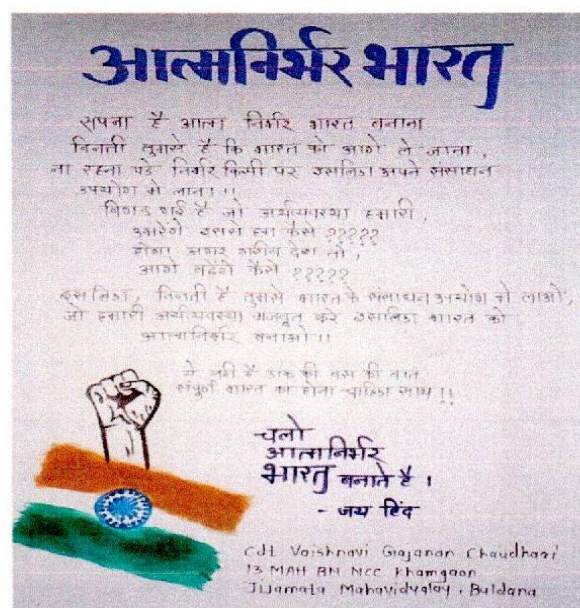 आत्मनिर्भर भारत
सपना है आत्मा निर्भर भारत बनाना
विनती तुमसे है कि भारत को आगे ले जाना,
ना रहना पडे निर्भर किसी पर इसलिए अपने संसाधन
उपयोग मे लाना !!
बिगड गई है जो अर्थव्यवस्था हमारी,
उभरेंगे उससे हम कैसे ?????
होगा अगर गरीब देश तो,
आगे बढेंगे कैसे ?????
इसलिए, विनती है तुमसे भारत के संसाधन उपयोग मे लाओ,
जो हमारी अर्थव्यवस्था मजबूत करे इसलिए भारत को
आत्मानिर्भर बनाओ !!
ये नही है एक की बस की बात
संपूर्ण भारत का होना चाहिए साथ !!
चलो
आत्मानिर्भर
भारत बनाते है ।
- जय हिंद
Cdt Vaishnavi Gajanan Chaudhari
13 MAH BN NCC Khamgaon
Jijamata Mahavidyalay, Buldana